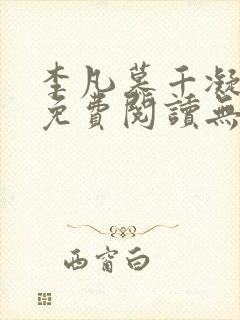 李凡慕千凝
免費閱讀無
西窗白